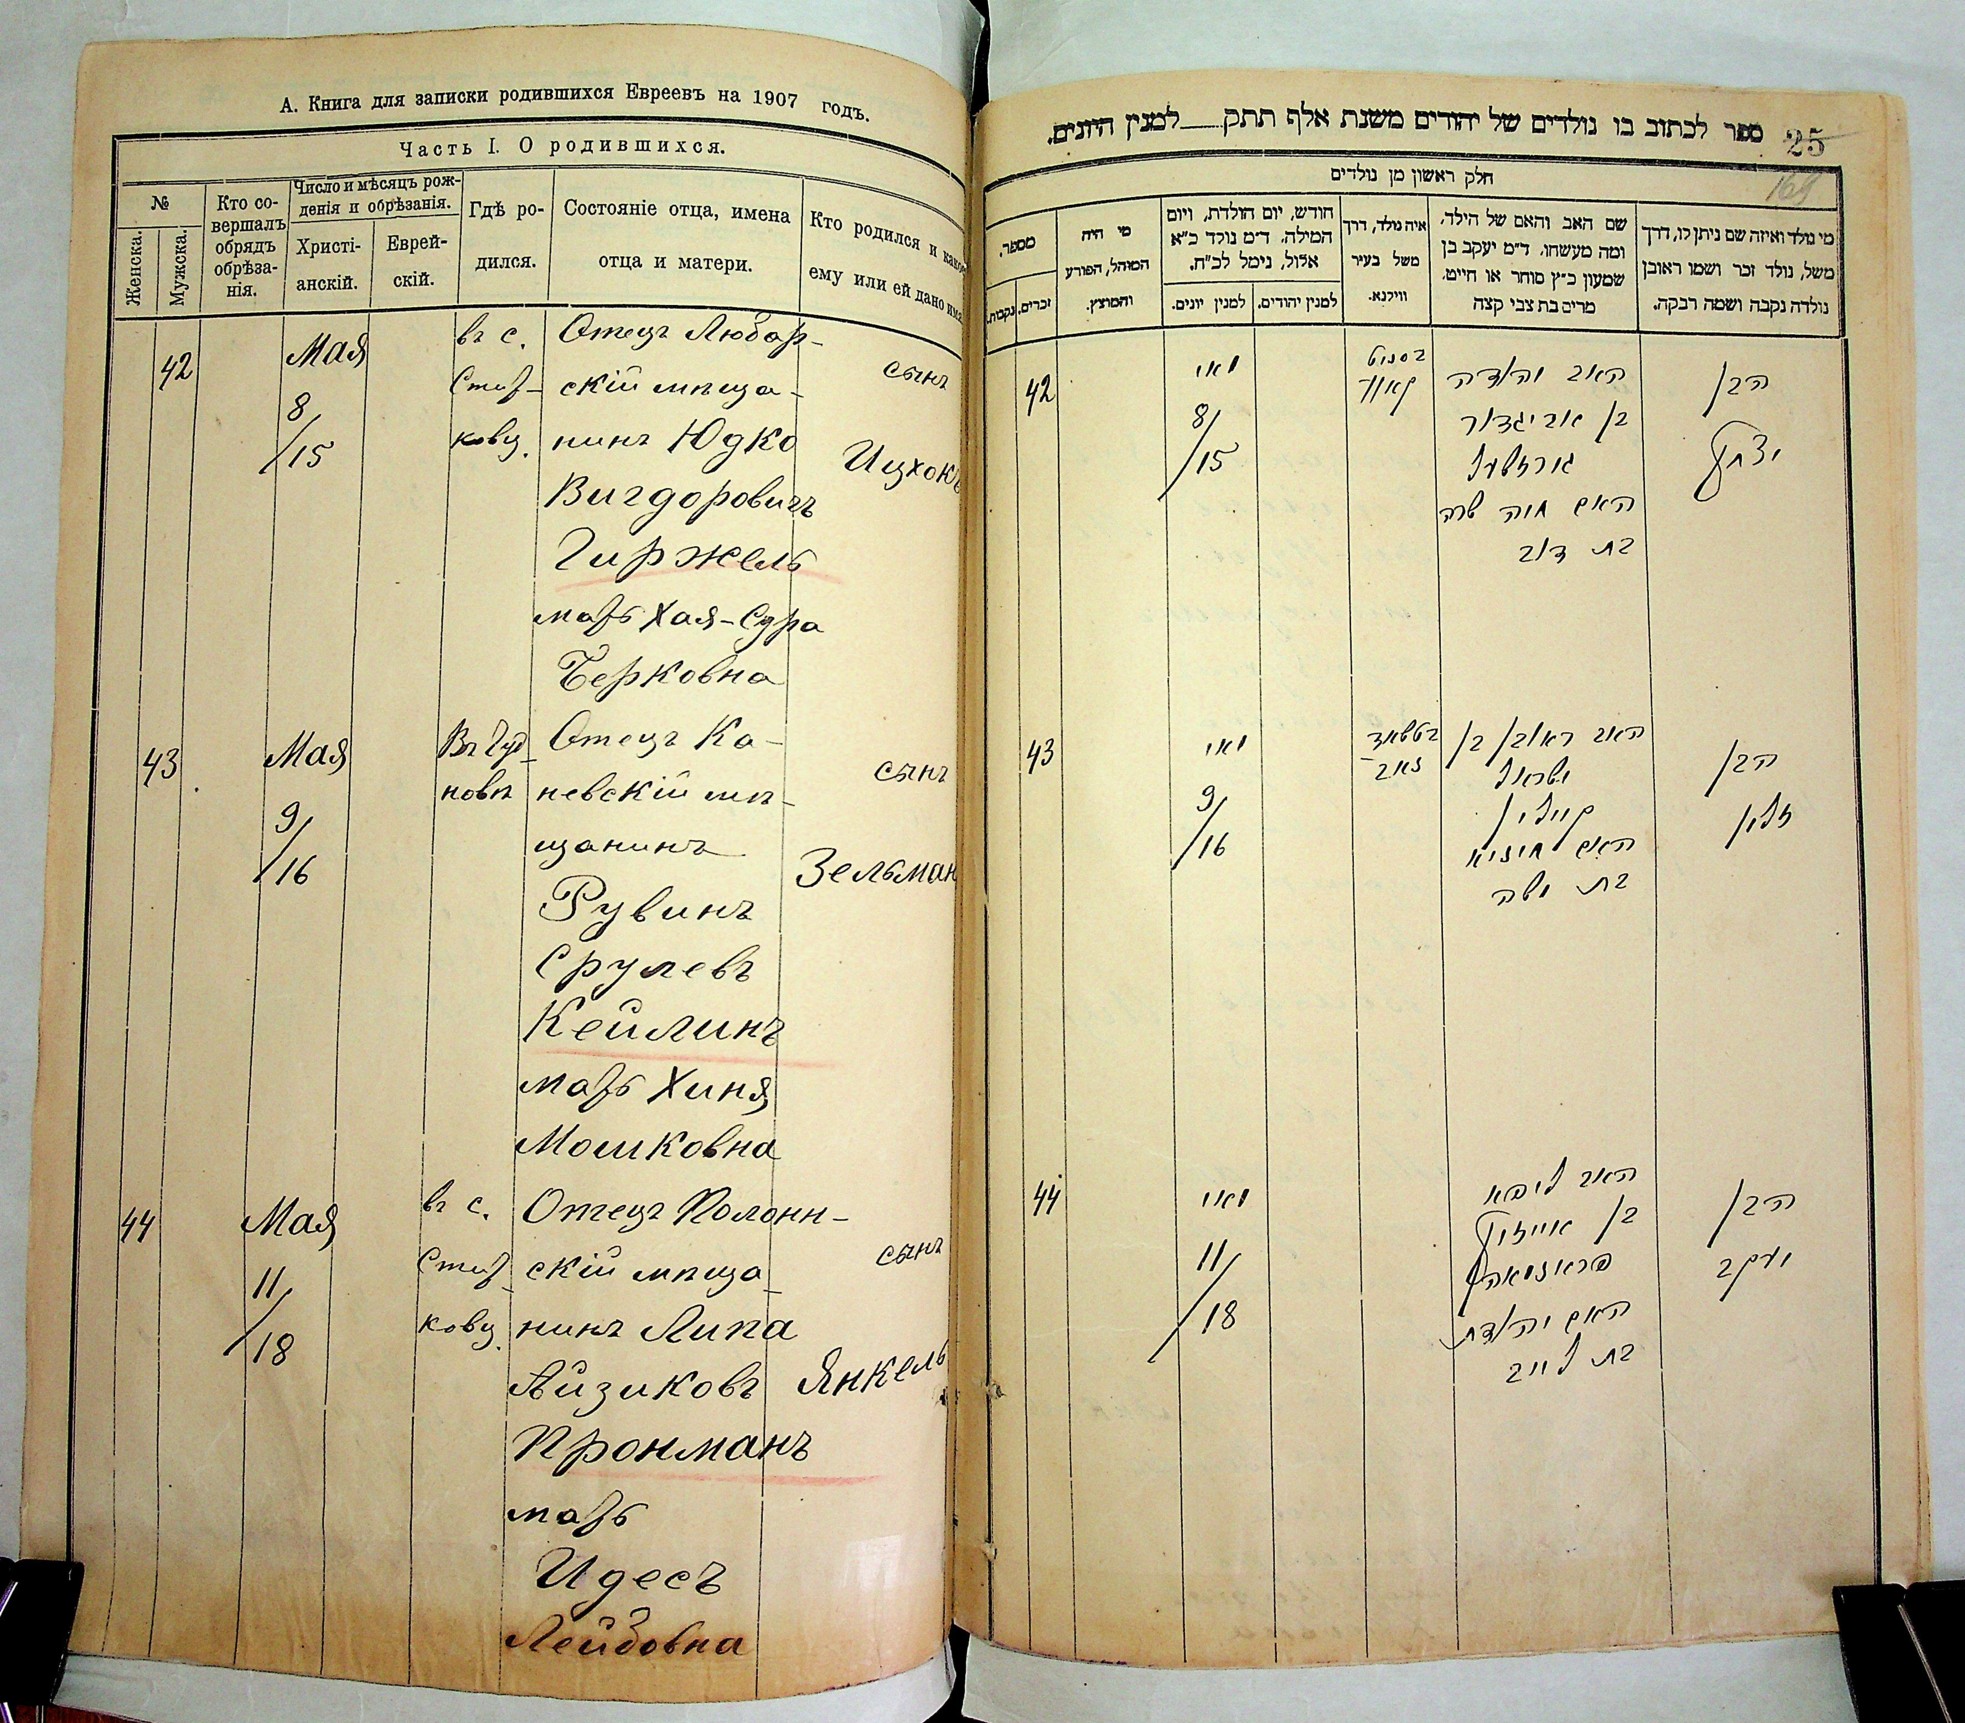 А. Книга для записки родившихся Евреевъ на 1907 годъ.
Часть I. О родившихся.
№
Женска.
Мужска.
Кто со-
вершалъ
обрядъ
обрѣза-
нія.
Число и мѣсяцъ рож-
денія и обрѣзанія.
Христі-
анскій.
Еврей-
скій.
Гдѣ ро-
дился.
Состояніе отца, имена
отца и матери.
Кто родился и какое
ему или ей дано имя
42
Мая
8/15
въ с.
Стет-
ковц.
Отецъ Любар-
скій мѣща-
нинъ Юдко
Вигдоровичъ
Гиржель
мать Хая-Сура
Берковна
сынъ
Ицхокъ
43
Мая
9/16
Въ Чуд-
новѣ
Отецъ Ка-
невскій мѣ-
щанинъ
Рувинъ
Срулевъ
Кейлинъ
мать Хиня
Мошковна
сынъ
Зельман
44
Мая
11/18
въ с.
Стет-
ковц.
Отецъ Полонн-
скій мѣща-
нинъ Липа
Айзиковъ
Пронманъ
мать
Идесъ
Лейбовна
сынъ
Янкель
25
169
ספר לכתוב בו נולדים של יהודים משנת אלף תתק___למנין היונים.
חלק ראשון מן נולדים
מי נולד ואיזה שם ניתן לו, דרך
משל, נולד זכר ושמו ראובן
נולדה נקבה ושמה רבקה.
שם האב והאם של הילד,
ומה מעשהו. ד״מ יעקב בן
שמעון כ״ץ סוחר או חייט.
מרים בת צבי קצה
איה נולד, דרך
משל בעיר
ווילנא.
חודש, יום הולדת, ויום
המילה. ד״מ נולד כ״א
אלול, נימל לכ״ח.
למנין יהודים.
למנין יונים.
מי היה
המוהל, הפורע
והמוצץ.
מספר.
זכרים.
נקבות.
42
מאי
8/15
האב יהודה
בן אביגדור
האם חיה שרה
בת דוב
הבן
יצחק
43
מאי
9/16
האב ראובן בן
ישראל
קיילין
האם חיניא
בת משה
הבן
זלמן
44
מאי
11/18
האב ליפא
בן אייזיק
האם יהודת
בת לייב
הבן
יעקב